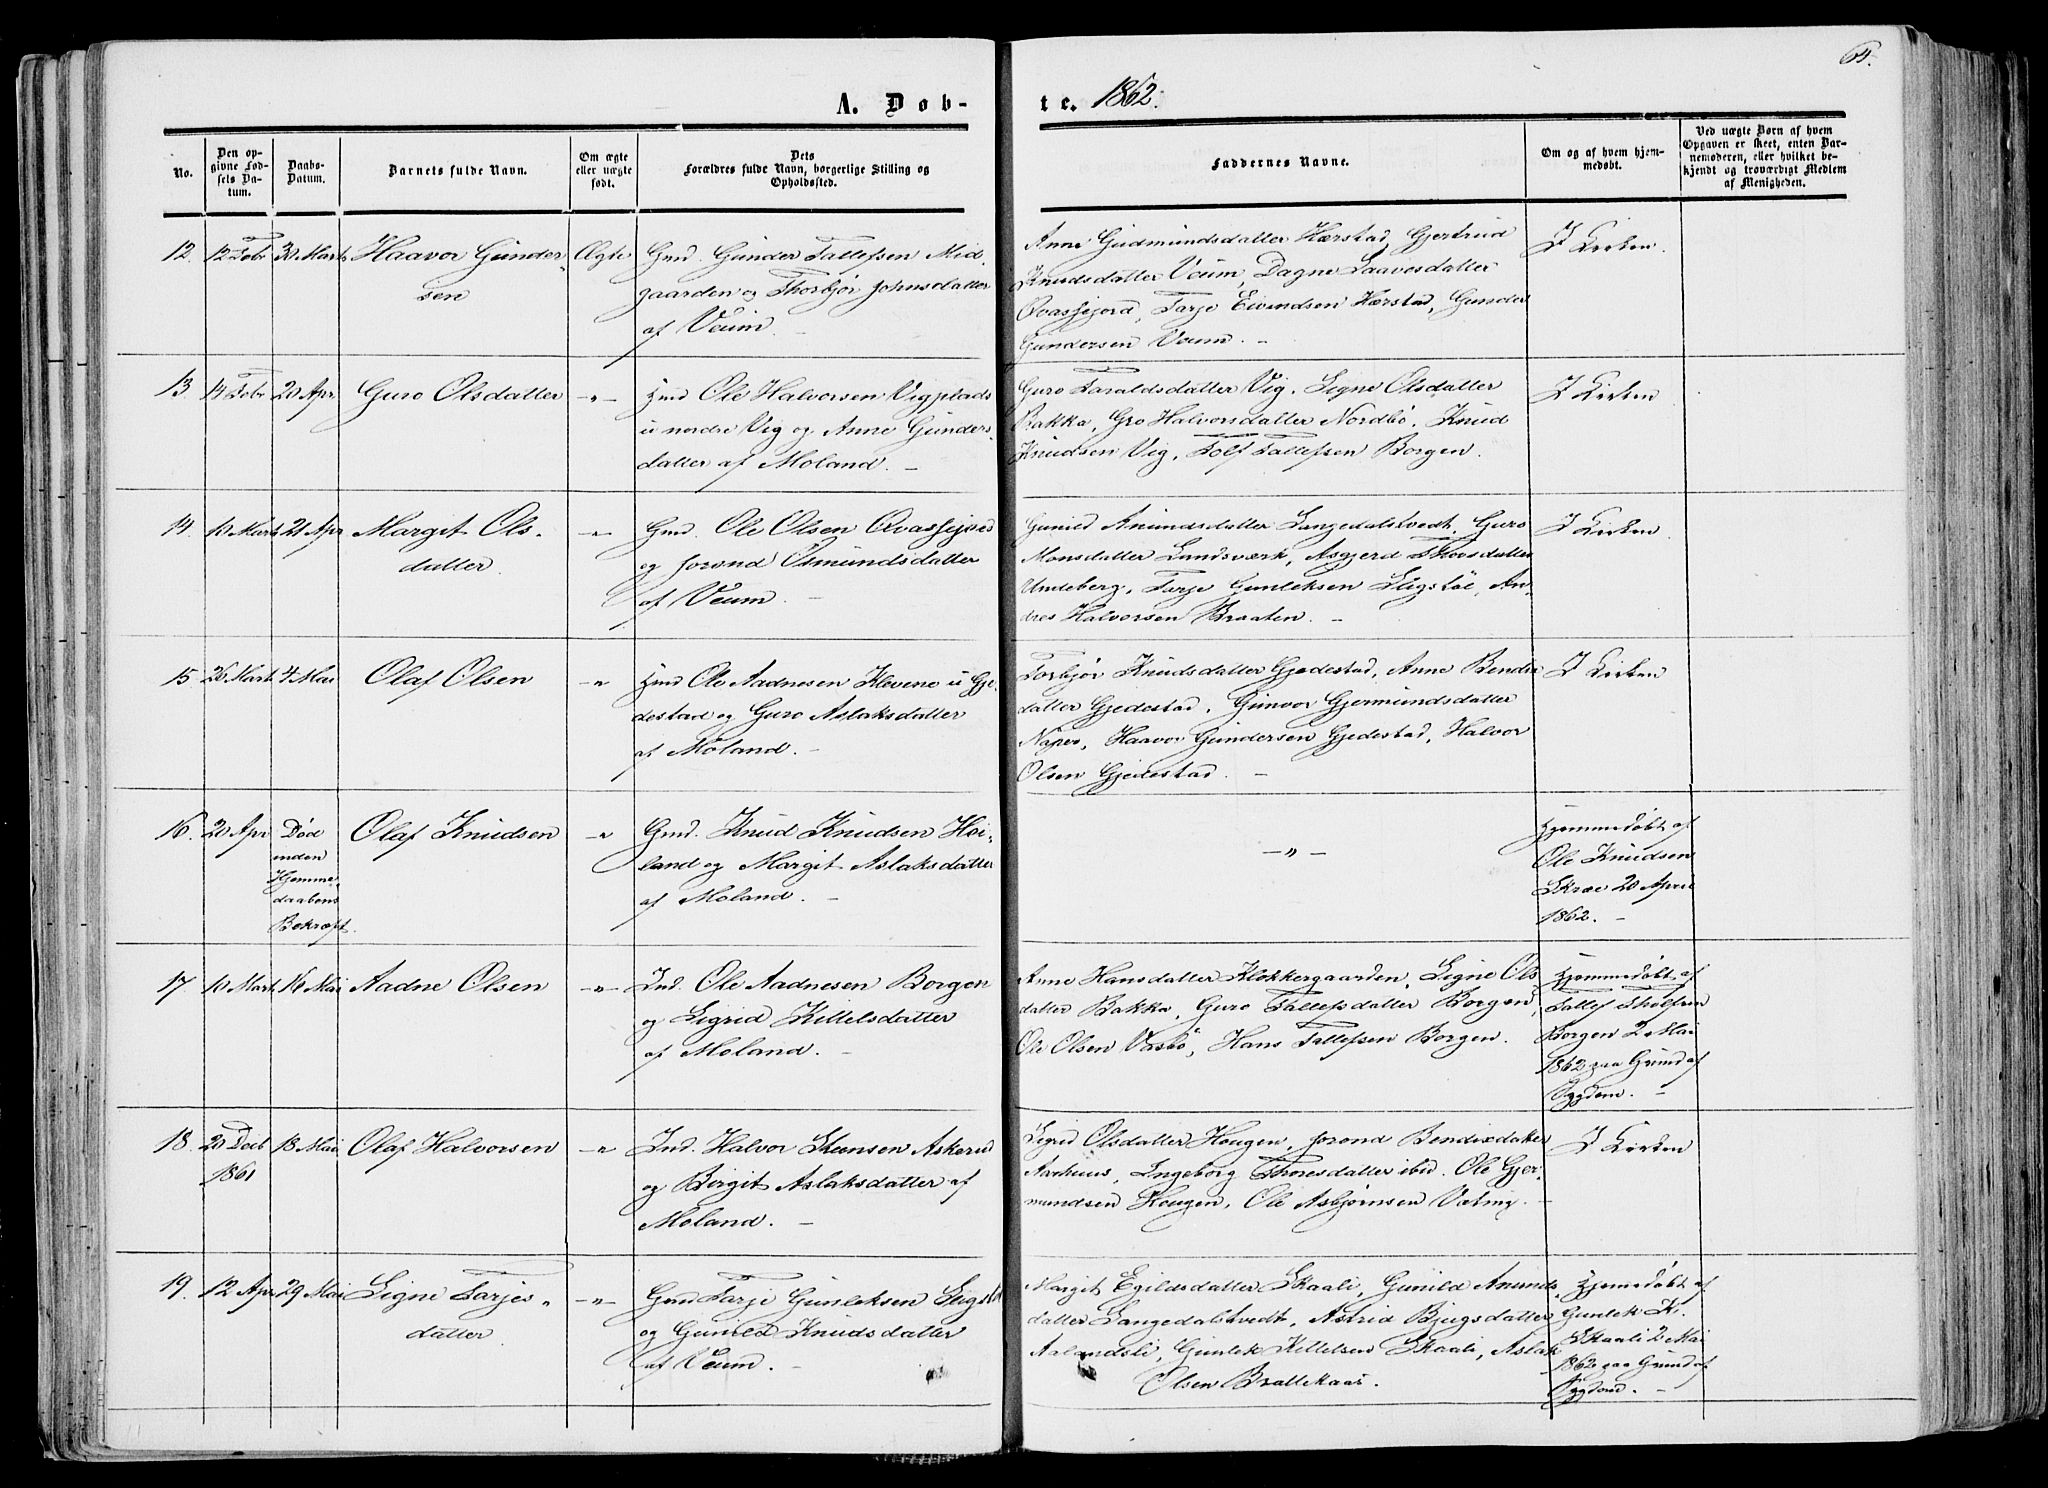 A. Døb-
te. 1862.
No.
Den op-
givne Fød-
sels Da-
tum.
Daabs-
Datum.
Barnets fulde Navn.
Om ægte
eller uægte
født.
Dets
Forældres fulde Navn, borgerlige Stilling og
Opholdssted.
Faddernes Navne.
Om og af hvem hjem-
medøbt.
Ved uægte Børn af hvem
Opgaven er skeet, enten Bar-
nemoderen, eller hvilket be-
kjendt og troværdigt Medlem
af Menigheden.
12. 12 Febr 30 Marts Haavor Gunder-
sen
Ægte
Gmd. Gunder Tallefsen Mid-
gaarden og Thorbjør Johnsdatter
af Veum. -
Anne Gudmundsdatter Hærstad, Gjertrud
Knudsdatter Veum, Dagne Saavesdatter
Qvassjord, Tarje Eivindsen Hærstad, Gunder
Gundersen Veum. -
I Kirken.
13. 14 Febr 20 Apr. Guro Olsdatter -"-
Hmd Ole Halvorsen Vigplads
u nordre Vig og Anne Gunders-
datter af Moland. -
Guro Taraldsdatter Vig, Signe Olsdatter
Bakka, Gro Halvorsdatter Nordbø, Knud
Knudsen Vig, Tolf Tallefsen Borgen.
I Kirken
14. 10 Marts 21 Apr Margit Ols-
datter.
-"-
Gmd. Ole Olsen Qvassjord
og Jorond Osmundsdatter
af Veum. -
Gunild Anundsdatter Langedalstvedt, Guro
Monsdatter Landsværk, Asgjerd Thovsdatter
Undeberg, Tarje Gunleksen Stigstøl, An-
dres Halvorsen Braaten. -
I Kirken
15. 26 Marts 4 Mai Olaf Olsen -"-
Hmd Ole Aadnesen Klevene u Gje-
destad og Guro Aslaksdatter
af Moland. -
Torbjør Knudsdatter Gjedestad, Anne Bendix
datter Gjedestad, Gunvor Gjermundsdatter
Naper, Haavor Gundersen Gjedestad, Halvor
Olsen Gjedestad. -
I Kirken
16. 20 Apr Død
inden
Hjemme-
daabens
Bekræft.
Olaf Knudsen -"-
Gmd. Knud Knudsen Høi-
land og Margit Aslaksdatter
af Moland. -
-"-
Hjemmedøbt af
Ole Knudsen
Skræe 20 April
1862. -
17. 10 Mart. 16 Mai Aadne Olsen -"-
Ind. Ole Aadnesen Borgen
og Sigrid Kittelsdatter
af Moland. -
Anne Hansdatter Klokkergaarden, Signe Ols
datter Bakka, Guro Tallefsdatter Borgen,
Ole Olsen Vasbø, Hans Tallefsen Borgen.
Hjemmedøbt af
Tallef Tholfsen
Borgen 2 Mai
1862 paa Grund af
Sygdom. -
18. 20 Decb
1861
18 Mai Olaf Halvorsen -"-
Ind. Halvor Steensen Askerud
og Birgit Aslaksdatter af
Moland. -
Sigrid Olsdatter Hougen, Jorond Bendixdatter
Aarhuus, Ingeborg Thoresdatter ibid. Ole Gjer-
mundsen Hougen, Ole Asbjørnsen Vatnø. -
I Kirken
19. 12 Apr. 29 Mai Signe Tarjes-
datter.
-"-
Gmd Tarje Gunleksen Stigstøl
og Gunild Knudsdatter
af Veum. -
Margit Egilsdatter Skaali, Gunild Anunds-
datter Langedalstvedt, Astrid Bjugsdatter
Aalandsli, Gunlek Kittelsen Skaali, Aslak
Olsen Brattekaas.
Hjemmedøbt af
Gunlek K.
Skaali 2 Mai
1862 paa Grund af
Sygdom. -